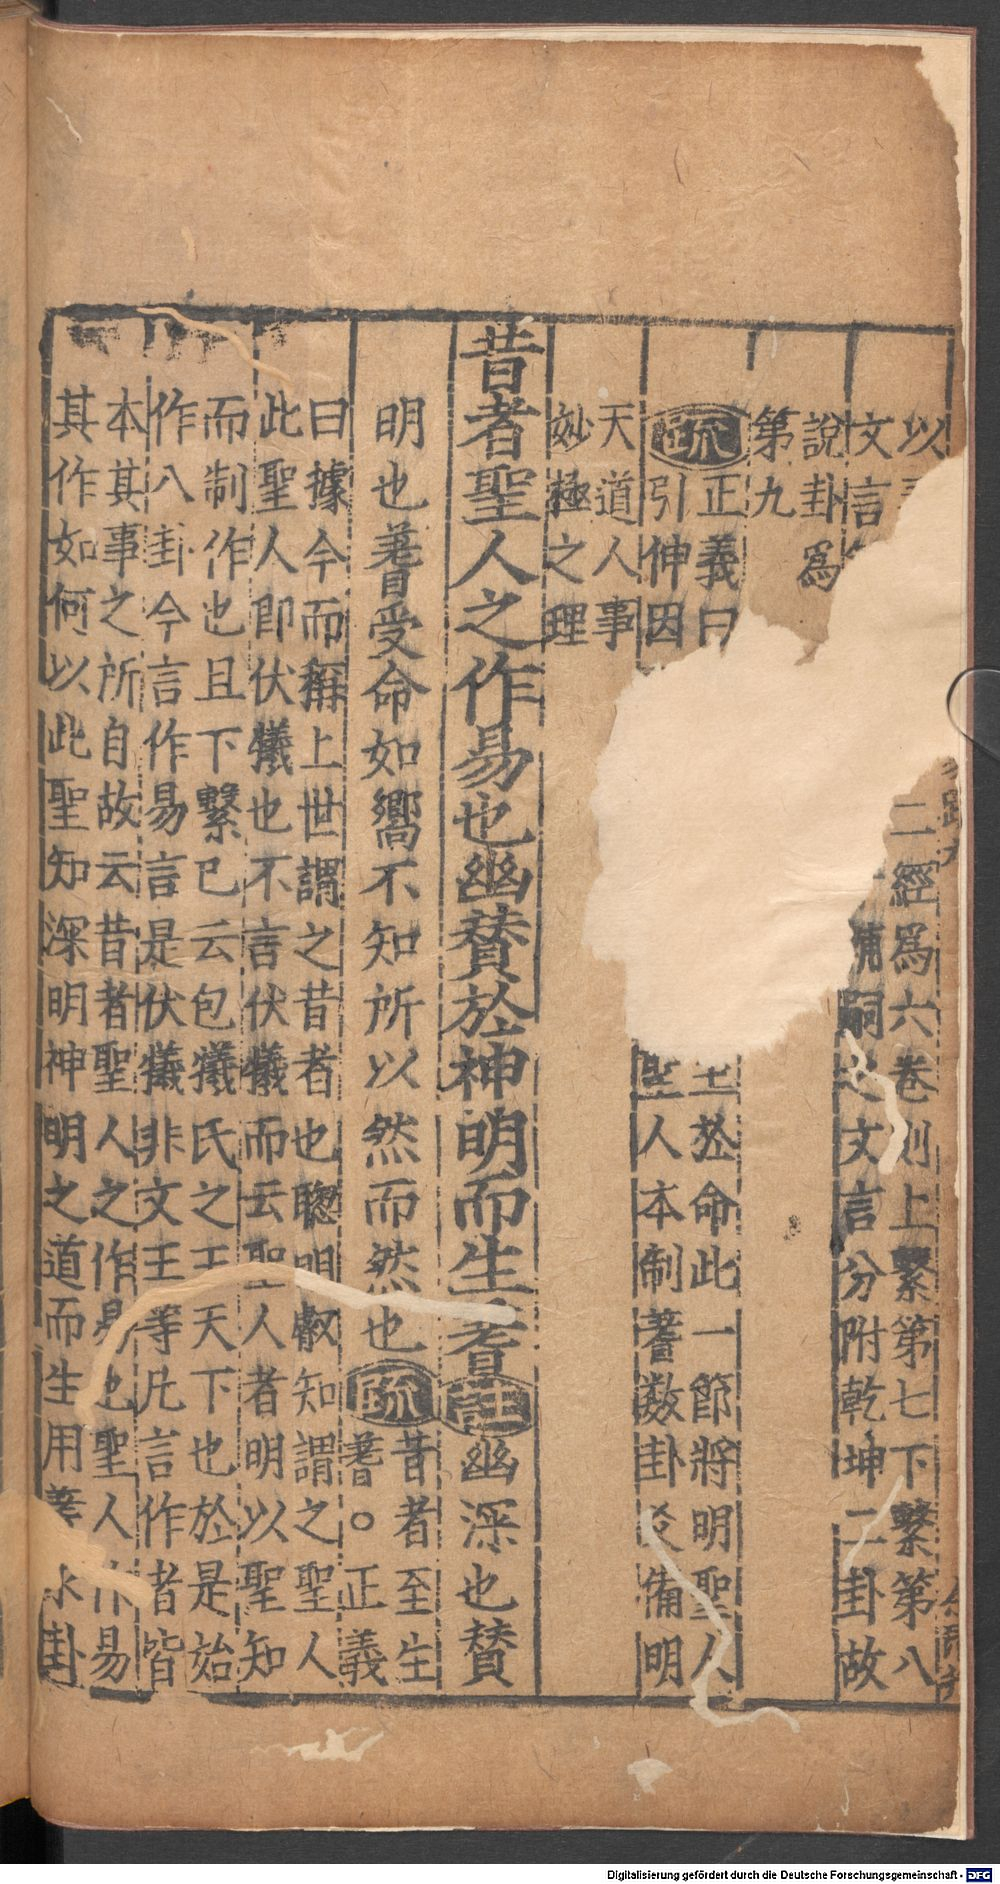 以
二經為六卷則上繫第七下繫第八
文言
輔嗣之文言分附乾坤二卦故
說卦為
第九
疏正義曰
至於命此一節將明聖人
引伸因
聖人本制蓍數卦爻備明
天道人事
妙極之理
昔者聖人之作易也幽贊於神明而生蓍註幽深也贊
明也蓍受命如嚮不知所以然而然也疏昔者至生
蓍○正義
曰據今而稱上世謂之昔者也聰明叡知謂之聖人
此聖人即伏犧也不言伏犧而云聖人者明以聖知
而制作也且下繫已云包犧氏之王天下也於是始
作八卦今言作易言是伏犧非文王等凡言作者皆
本其事之所自故云昔者聖人之作易也聖人作易
其作如何以此聖知深明神明之道而生用蓍求卦
Digitalisierung gefördert durch die Deutsche Forschungsgemeinschaft - DFG